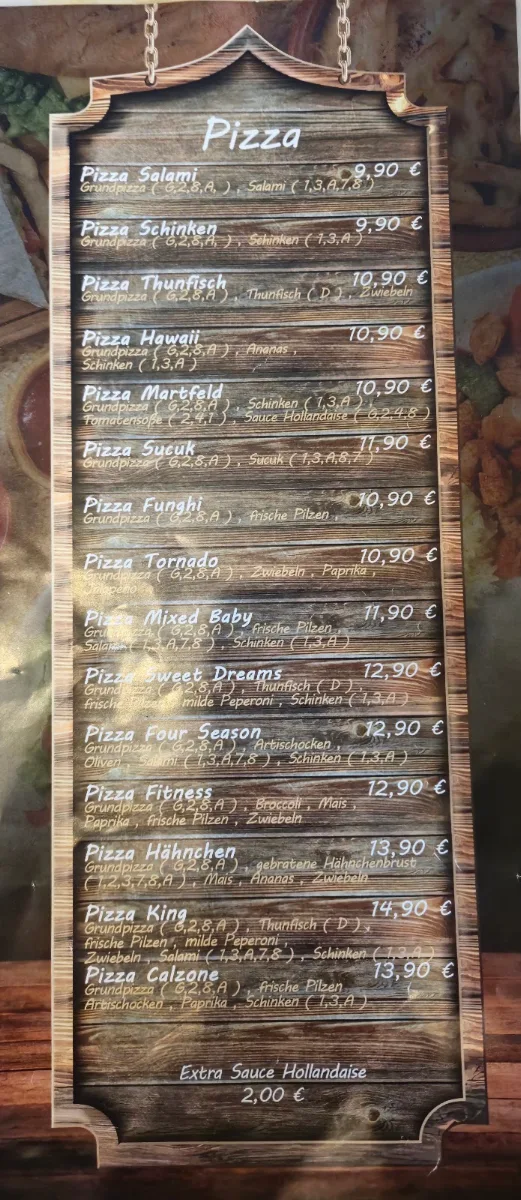 Pizza
Pizza Salami 9,90 €
Grundpizza ( G,2,8,A, ) , Salami ( 1,3,A,7,8 )
Pizza Schinken 9,90 €
Grundpizza ( G,2,8,A, ) , Schinken ( 1,3,A )
Pizza Thunfisch 10,90 €
Grundpizza ( G,2,8,A ) , Thunfisch ( D ) , Zwiebeln
Pizza Hawaii 10,90 €
Grundpizza ( G,2,8,A ) , Ananas ,
Schinken ( 1,3,A )
Pizza Martfeld 10,90 €
Grundpizza ( G,2,8,A ) , Schinken ( 1,3,A ) ,
Tomatensoße ( 2,4,1 ) , Sauce Hollandaise ( G,2,4,8 )
Pizza Sucuk 11,90 €
Grundpizza ( G,2,8,A ) , Sucuk ( 1,3,A,8,7 )
Pizza Funghi 10,90 €
Grundpizza ( G,2,8,A ) , frische Pilzen ,
Pizza Tornado 10,90 €
Grundpizza ( G,2,8,A ) , Zwiebeln , Paprika ,
Jalapeno
Pizza Mixed Baby 11,90 €
Grundpizza ( G,2,8,A ) , frische Pilzen ,
Salami ( 1,3,A,7,8 ) , Schinken ( 1,3,A )
Pizza Sweet Dreams 12,90 €
Grundpizza ( G,2,8,A ) , Thunfisch ( D ) ,
frische Pilzen , milde Peperoni , Schinken ( 1,3,A )
Pizza Four Season 12,90 €
Grundpizza ( G,2,8,A ) , Artischocken ,
Oliven , Salami ( 1,3,A,7,8 ) , Schinken ( 1,3,A )
Pizza Fitness 12,90 €
Grundpizza ( G,2,8,A ) , Broccoli , Mais ,
Paprika , frische Pilzen , Zwiebeln
Pizza Hähnchen 13,90 €
Grundpizza ( G,2,8,A ) , gebratene Hähnchenbrust
( 1,2,3,7,8,A ) , Mais , Ananas , Zwiebeln
Pizza King 14,90 €
Grundpizza ( G,2,8,A ) , Thunfisch ( D ) ,
frische Pilzen , milde Peperoni ,
Zwiebeln , Salami ( 1,3,A,7,8 ) , Schinken ( 1,3,A )
Pizza Calzone 13,90 €
Grundpizza ( G,2,8,A ) , frische Pilzen
Artischocken , Paprika , Schinken ( 1,3,A )
Extra Sauce Hollandaise
2,00 €